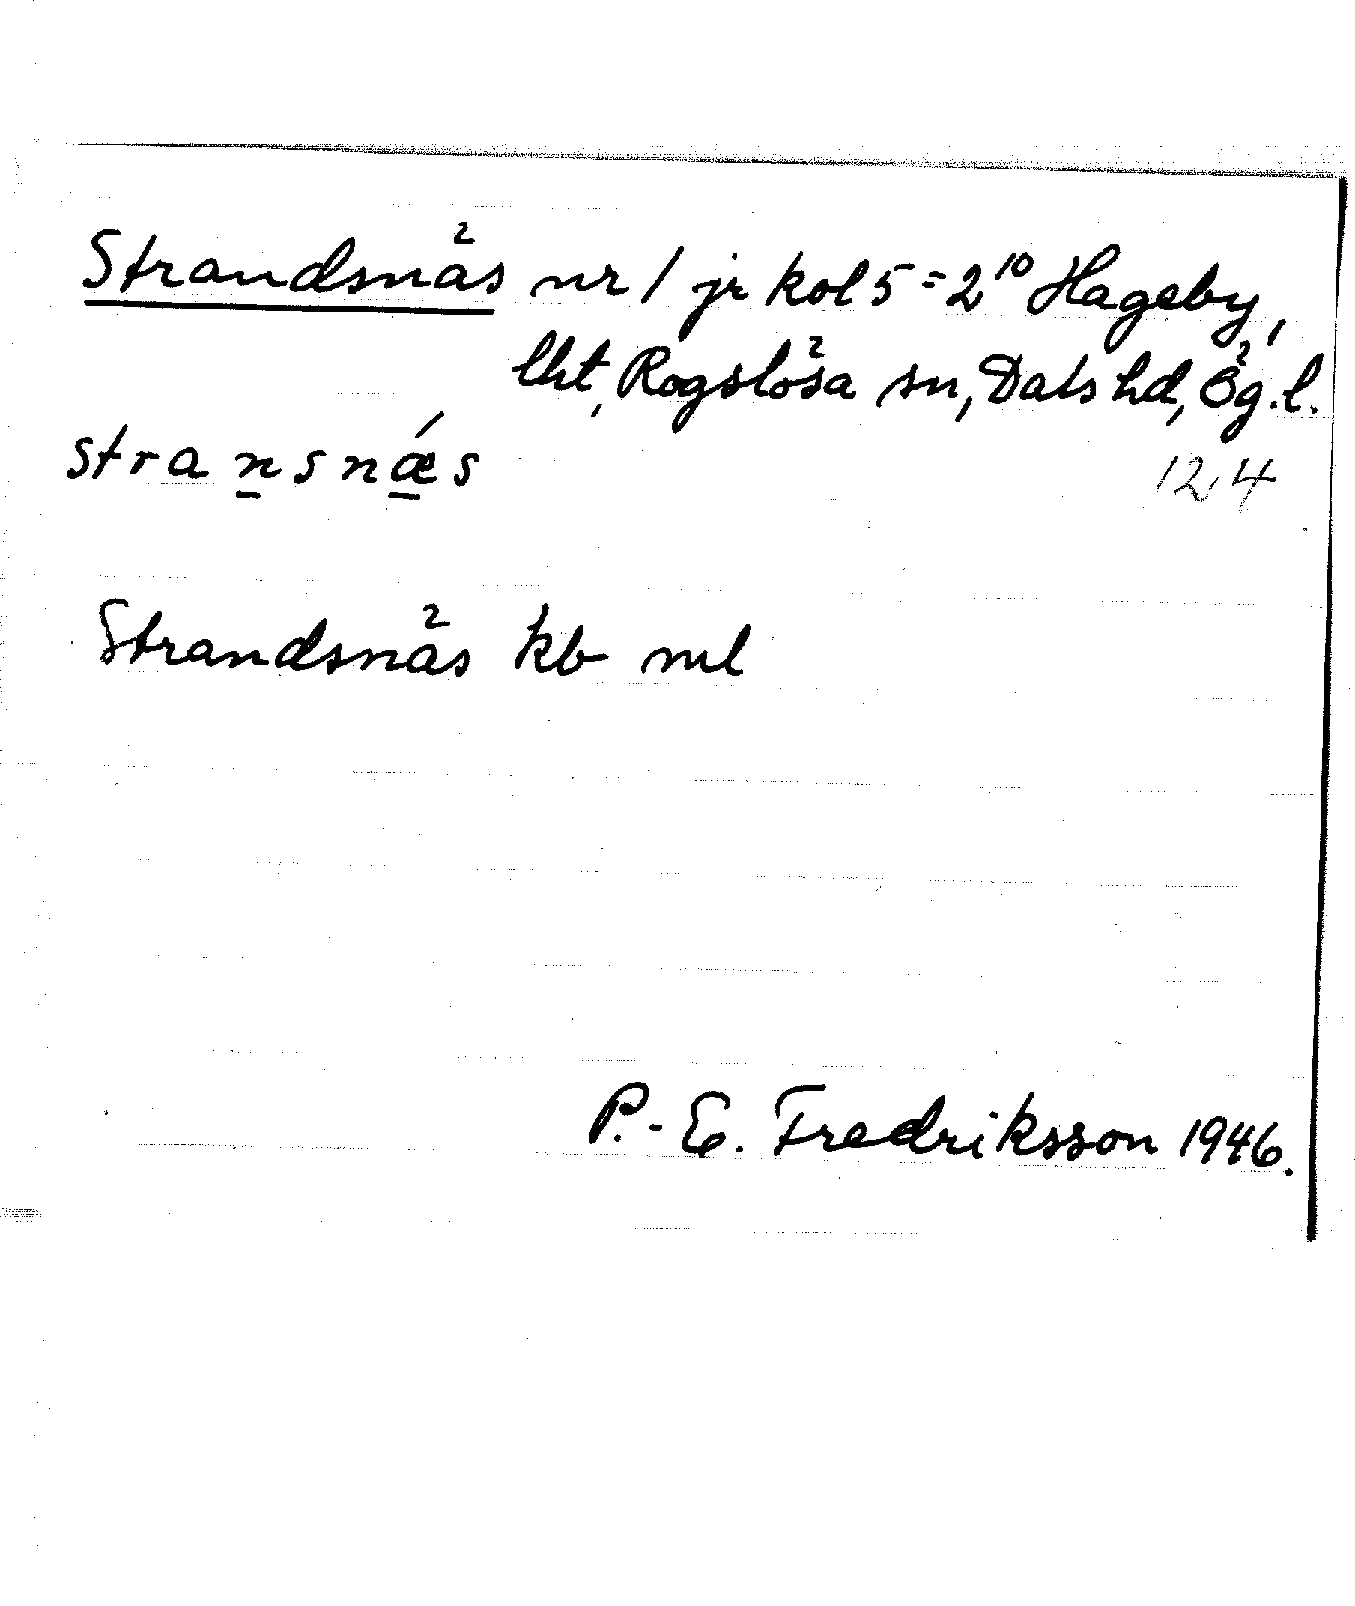 Strandsnäs nr 1 jr kol 5 = 2¹⁰ Hageby,
lht, Rogslösa sn, Dals hd, Ög.l.
stran̲snǽ̲s 124
Strandsnäs kb ml
P.-E. Fredriksson 1946.